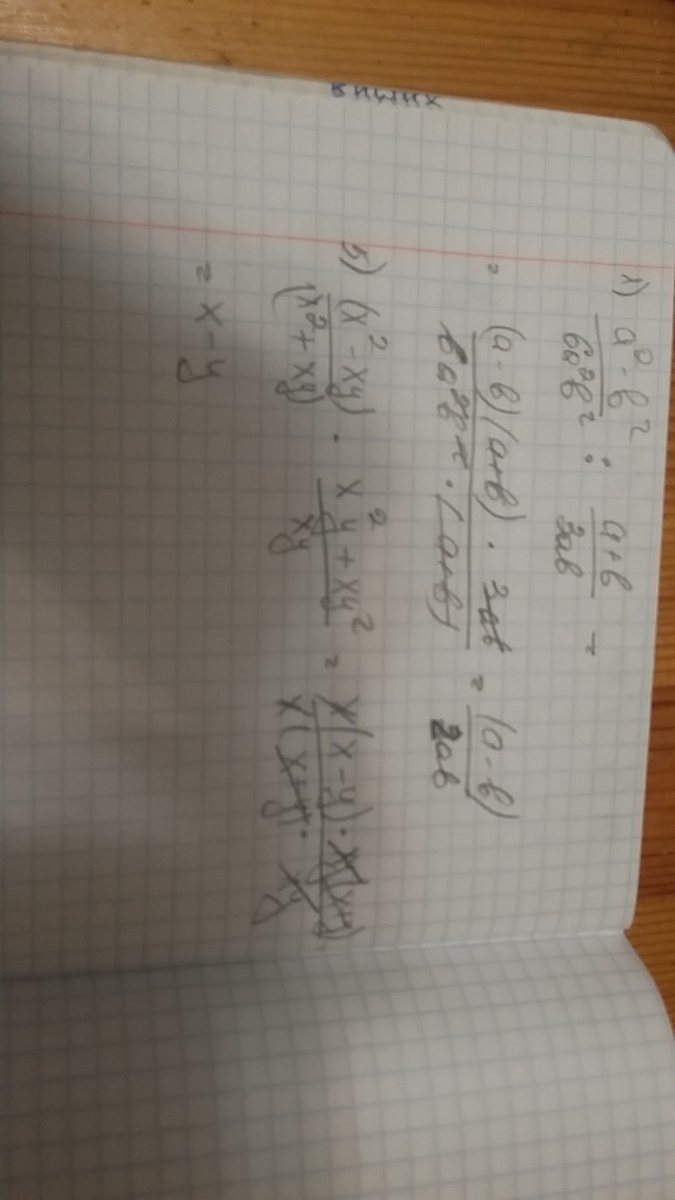 1) \frac{a^2-b^2}{6a^2b^2} : \frac{a+b}{3ab} =
= \frac{(a-b)(a+b) \cdot 3ab}{6a^2b^2 \cdot (a+b)} = \frac{(a-b)}{2ab}
5) \frac{(x^2-xy)}{(x^2+xy)} \cdot \frac{x^2y+xy^2}{xy} = \frac{x(x-y) \cdot xy(x+y)}{x(x+y) \cdot xy}
= x-y